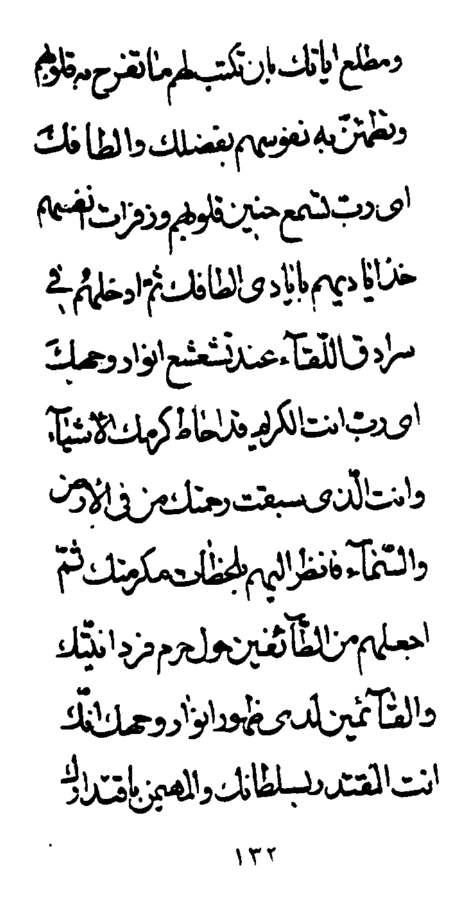 ومطلع ایاتک بان تکتب لهم ما تفرح به قلوبهم
وتطمئنّ به نفوسهم بفضلک والطافک
ای ربّ تسمع حنین قلوبهم وزفرات انفسهم
خذ ایادیهم بایادی الطافک ثمّ ادخلهم فی
سرادق اللّقآء عند تشعشع انوار وجهک
ای ربّ انت الکریم قد احاط کرمک الاشیآء
وانت الّذی سبقت رحمتک من فی الارض
والسّمآء فانظر الیهم بلحظات مکرمتک ثمّ
اجعلهم من الطّآئفین حول حرم فردانیّتک
والقآئمین لدی ظهور انوار وجهک انّک
انت المقتدر بسلطانک والمهیمن باقتدارک
١٣٢